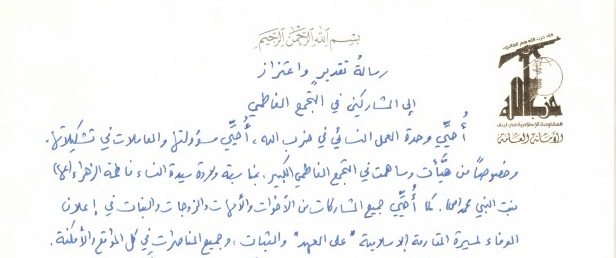 بسم الله الرحمن الرحيم
فإن حزب الله هم الغالبون
حزب الله
المقاومة الإسلامية في لبنان
الأمانة العامة
رسالة تقدير واعتزاز
إلى المشاركين في التجمع الفاطمي
أُحيّي وحدة العمل النسائي في حزب الله، أُحيّي مسؤولتها والعاملات في تشكيلاتها.
وخصوصاً من هيّأت وساهمت في التجمع الفاطمي الكبير، بمناسبة ولادة سيدة النساء فاطمة الزهراء (عها)
بنت النبي محمد (ص). كما أُحيّي جميع المشاركات من الأخوات والأمهات والزوجات والبنات في إعلان
الوفاء لمسيرة المقاومة الإسلامية "على العهد" والثبات، وجميع المناصرات في كل المواقع والأمكنة.